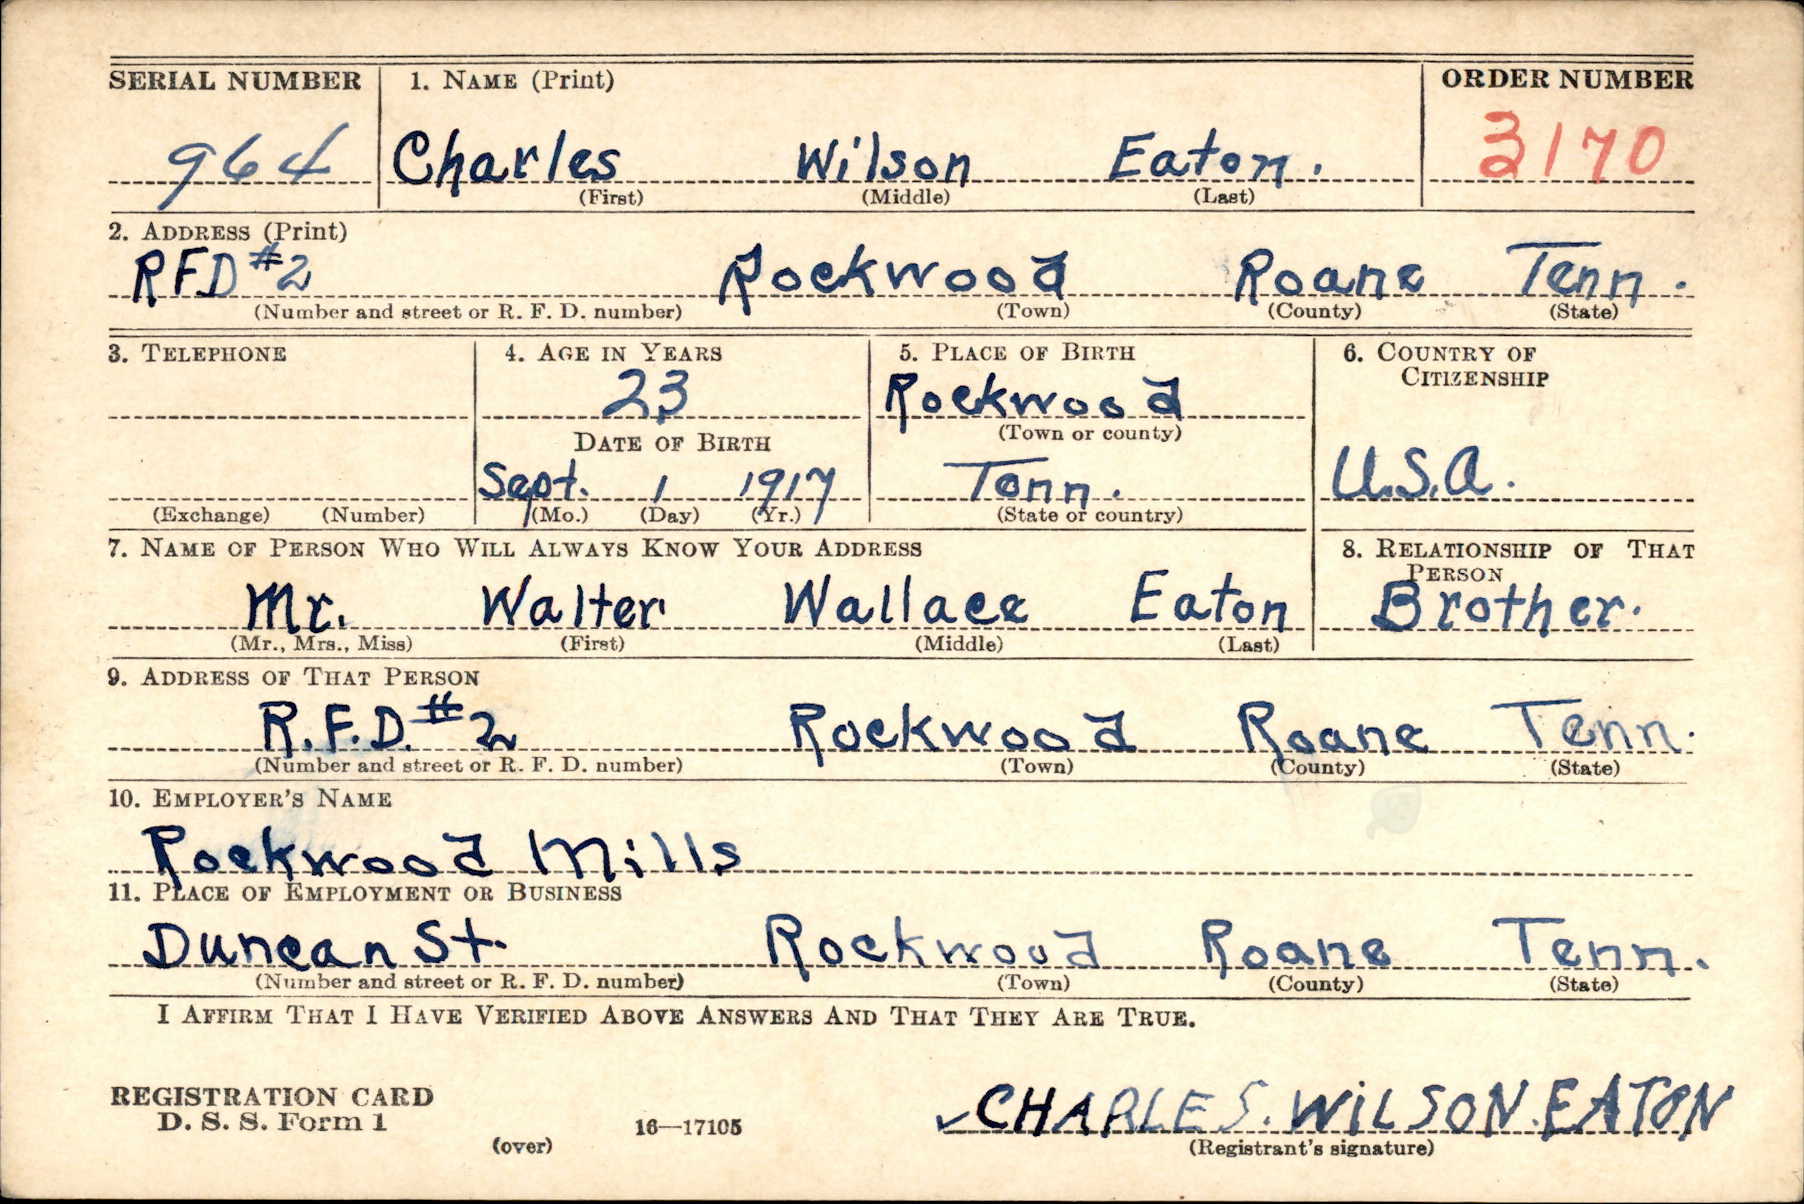 SERIAL NUMBER 1. NAME (Print) ORDER NUMBER
964 Charles Wilson Eaton. 3170
(First) (Middle) (Last)
2. ADDRESS (Print)
RFD #2 Rockwood Roane Tenn.
(Number and street or R. F. D. number) (Town) (County) (State)
3. TELEPHONE 4. AGE IN YEARS 5. PLACE OF BIRTH 6. COUNTRY OF
CITIZENSHIP
23 Rockwood
DATE OF BIRTH (Town or county)
Sept. 1 1917 Tenn. U.S.A.
(Exchange) (Number) (Mo.) (Day) (Yr.) (State or country)
7. NAME OF PERSON WHO WILL ALWAYS KNOW YOUR ADDRESS 8. RELATIONSHIP OF THAT
PERSON
Mr. Walter Wallace Eaton Brother.
(Mr., Mrs., Miss) (First) (Middle) (Last)
9. ADDRESS OF THAT PERSON
R.F.D. #2 Rockwood Roane Tenn.
(Number and street or R. F. D. number) (Town) (County) (State)
10. EMPLOYER'S NAME
Rockwood Mills
11. PLACE OF EMPLOYMENT OR BUSINESS
Duncan St. Rockwood Roane Tenn.
(Number and street or R. F. D. number) (Town) (County) (State)
I AFFIRM THAT I HAVE VERIFIED ABOVE ANSWERS AND THAT THEY ARE TRUE.
REGISTRATION CARD
D. S. S. Form 1 (over) 16—17105 CHARLES. WILSON. EATON
(Registrant's signature)